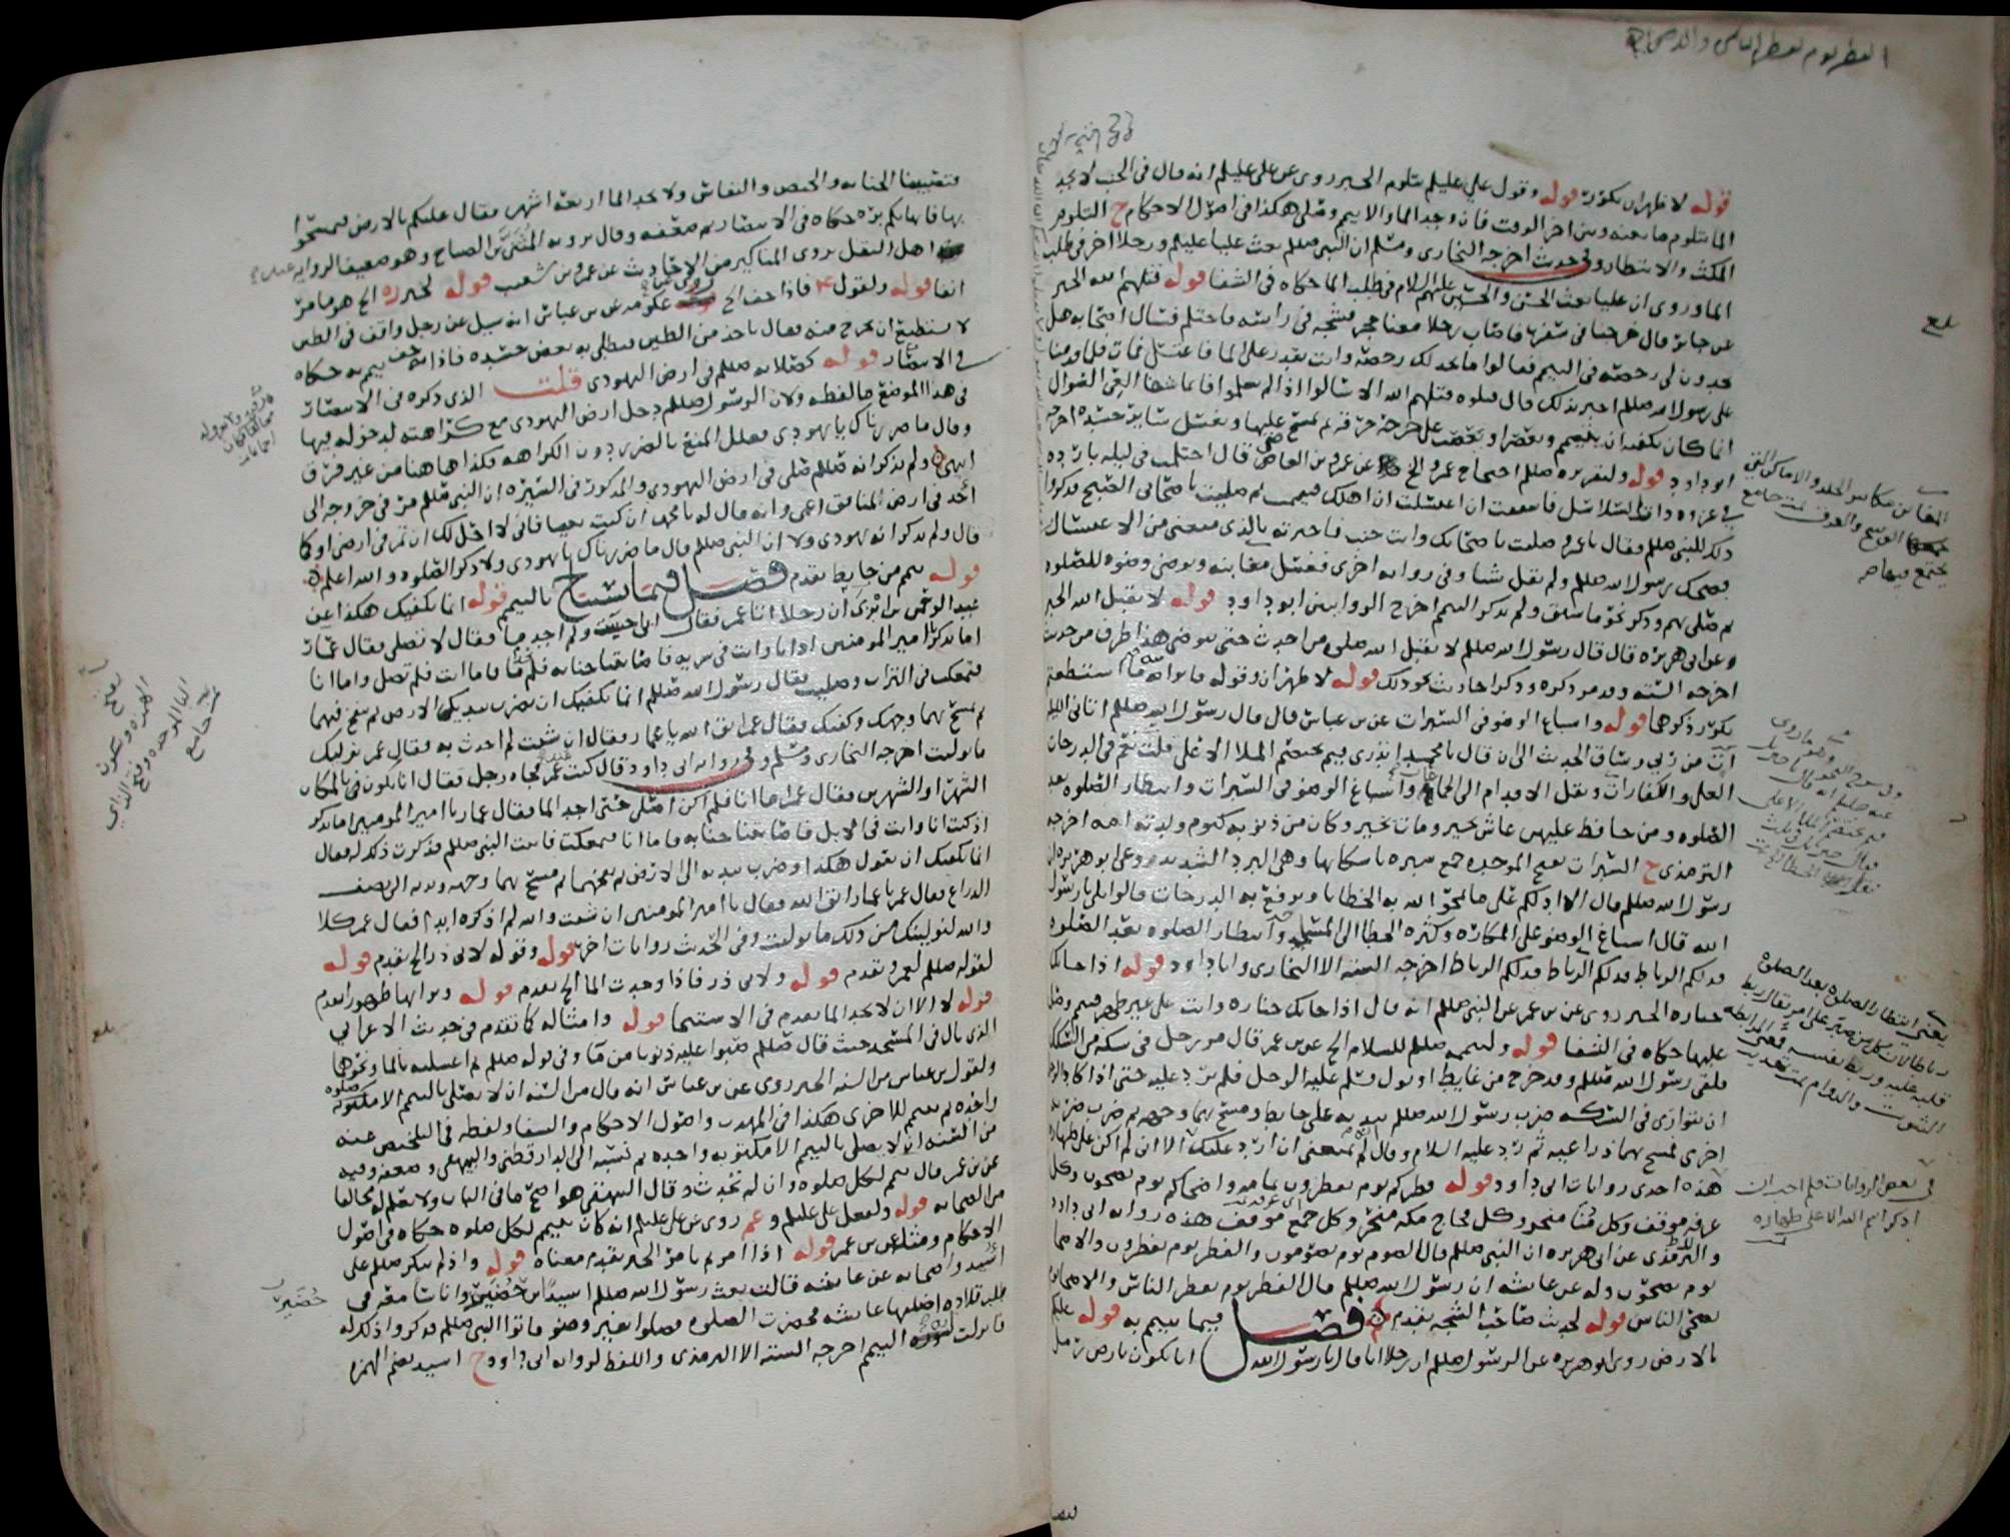 الفطر يوم يفطر الناس والاضحى
قوله لا ظهران بكورة قوله وقول علي عليلم يتلوم الخبر روى عن علي عليلم انه قال في الجنب لا يجد
الما يتلوم ما بينه وبين اخر الوقت فان وجد الما والا تيمم وصلى هكذا في اصول الاحكام ح التلوم
المكث والانتظار وفي حديث اخرجه البخارى ومسلم ان النبي صللم بعث عليا عليلم ورجلا اخر في طلب
الما وروى ان عليا بعث الحسن والحسين عليهم السلام في طلب الما حكاه في الشفا قوله قتلهم الله الخبر
عن جابر قال خرجنا في سفر فاصاب رجلا معنا حجر فشجه في راسه فاحتلم فسال اصحابه هل
تجدون لي رخصه في التيمم فقالوا ما نجد لك رخصه وانت تقدر على الما فاغتسل فمات فلما قدمنا
على رسول الله صللم اخبر بذلك قال قتلوه قتلهم الله الا سالوا اذا لم يعلموا فانما شفا العي السوال
انما كان يكفيه ان يتيمم ويعصر او يعصب على جرحه خرقه ثم يمسح عليها ويغسل ساير جسده اخرجه
ابو داود قوله ولتقريره صللم احتجاج عمرو الخ عن عمرو بن العاص قال احتلمت في ليله بارده
في غزوه ذات السلاسل فاشفقت ان اغتسلت ان اهلك فتيممت ثم صليت باصحابي الصبح فذكروا
ذلك للنبي صللم فقال يا عمرو صليت باصحابك وانت جنب فاخبرته بالذي منعني من الاغتسال
فضحك رسول الله صللم ولم يقل شيا وفي روايه اخرى فغسل مغابنه وتوضى وضوه للصلوه
ثم صلى بهم وذكر نحو ما سبق ولم يذكر التيمم اخرج الروايتين ابو داود قوله لا يقبل الله الخبر
وعن ابي هريره قال قال رسول الله صللم لا يقبل الله صلوه من احدث حتى يتوضى هذا طرف من حديث
اخرجه السته وقد مر ذكره وذكر احاديث نحو ذلك قوله لا ظهران وقوله فاتوا منه ما استطعتم
تكرر ذكرهما قوله واسباغ الوضو في السبرات عن بن عباس قال قال رسول الله صللم اتاني الليله
ات من ربي وساق الحديث الى ان قال يا محمد اتدرى فيم يختصم الملا الاعلى قلت نعم في الدرجات
العلى والكفارات ونقل الاقدام الى الجماعات واسباغ الوضو في السبرات وانتظار الصلوه بعد
الصلوه ومن حافظ عليهن عاش بخير ومات بخير وكان من ذنوبه كيوم ولدته امه اخرجه
الترمذى ح السبرات بفتح الموحده جمع سبره باسكانها وهي البرد الشديد وعن ابو هريره ان
رسول الله صللم قال الا ادلكم على ما يمحو الله به الخطايا ويرفع به الدرجات قالوا بلى يا رسول
الله قال اسباغ الوضو على المكاره وكثره الخطا الى المسجد وانتظار الصلوه بعد الصلوه
فذلكم الرباط فذلكم الرباط فذلكم الرباط اخرجه السته الا البخارى وابا داود قوله اذا جاتك
جنازه الخبر روى عن بن عمر عن النبي صللم انه قال اذا جاتك جنازه وانت على غير طهر فتيمم وصل
عليها حكاه في الشفا قوله ولتيممه صللم للسلام الخ عن بن عمر قال مر رجل في سكه من السكك
فلقى رسول الله صللم وقد خرج من غايط او بول فسلم عليه الرجل فلم يرد عليه حتى اذا كاد الرجل
ان يتوارى في السكه ضرب رسول الله صللم بيديه على حايط ومسح بهما وجهه ثم ضرب ضربه
اخرى فمسح بهما ذراعيه ثم رد عليه السلام وقال انه لم يمنعني ان ارد عليك الا اني لم اكن على طهاره
هذه احدى روايات ابى داود قوله فطركم يوم تفطرون تمامه واضحاكم يوم تضحون وكل
عرفه موقف وكل منا منحر وكل فجاج مكه منحر وكل جمع موقف هذه روايه ابى داود
والترمذى عن ابى هريره ان النبي صللم قال الصوم يوم تصومون والفطر يوم تفطرون والاضحى
يوم تضحون وله عن عايشه ان رسول الله صللم قال الفطر يوم يفطر الناس والاضحى يوم
يضحى الناس قوله لحديث صاحب الشجه تقدم فصل فيما يتيمم به قوله عليكم
بالارض روى ابو هريره عن الرسول صللم ان رجلا اتاه فقال يا رسول الله انا نكون بارض رمل
بلغ
في بعض الروايات فلم احب ان
اذكر اسم الله الا على طهاره
فتصيبنا الجنابه والحيض والنفاس ولا نجد الما اربعه اشهر فقال عليكم بالارض فتمسحوا
بها فانها بكم بره حكاه في الانتصار ثم ضعفه وقال يرويه المثنى بن الصباح وهو ضعيف الروايه عند
اهل النقل يروى المناكير من الاحاديث عن عمرو بن شعيب قوله لخبر ره الخ هو ما مر
انفا قوله ولقول ع فاذا جف الخ روى عكرمه عن بن عباس انه سيل عن رجل واقف في الطين
لا يستطيع ان يخرج منه فقال ياخذ من الطين فيطلى به بعض جسده فاذا جف تيمم به حكاه
في الانتصار قوله كصلاته صللم في ارض اليهودى قلت الذى ذكره في الانتصار
في هذا الموضع ما لفظه ولان الرسول صللم دخل ارض اليهودى مع كراهته لدخوله فيها
وقال ما ضررناك يا يهودى فعلل المنع بالضرر دون الكراهه فكذا هاهنا من غير فرق
انتهى ولم يذكر انه صللم صلى في ارض اليهودى والمذكور في السيره ان النبي صللم مر في خروجه الى
احد في ارض المنافق اعمى وانه قال له يا محمد ان كنت نبيا فاني لا احل لك ان تمر في ارضي او كما
قال ولم يذكر انه يهودى ولا ان النبي صللم قال ما ضررناك يا يهودى ولا ذكر الصلوه والله اعلم
قوله تيمم من حايط تقدم فصل فيما يستباح بالتيمم قوله انما يكفيك هكذا عن
عبد الرحمن بن ابزى ان رجلا اتا عمر فقال اني اجنبت ولم اجد ما فقال لا تصلى فقال عمار
اما تذكر يا امير المومنين اذ انا وانت في سريه فاصابتنا جنابه فلم نجد ما فاما انت فلم تصل واما انا
فتمعكت في التراب وصليت فقال رسول الله صللم انما يكفيك ان تضرب بيديك الارض ثم تنفخ فيهما
ثم تمسح بهما وجهك وكفيك فقال عمر اتق الله يا عمار فقال ان شيت لم احدث به فقال عمر نوليك
ما توليت اخرجه البخارى ومسلم وفي روايه ابى داود قال كنت عند عمر فجاه رجل فقال انا نكون في المكان
الشهر او الشهرين فقال عمر اما انا فلم اكن اصلى حتى اجد الما فقال عمار يا امير المومنين اما تذكر
اذ كنت انا وانت في الابل فاصابتنا جنابه فاما انا فتمعكت فاتيت النبي صللم فذكرت ذلك له فقال
انما يكفيك ان تقول هكذا وضرب بيديه الى الارض ثم نفخهما ثم مسح بهما وجهه ويديه الى نصف
الذراع فقال عمر يا عمار اتق الله فقال يا امير المومنين ان شيت والله لم اذكره ابدا فقال عمر كلا
والله لنولينك من ذلك ما توليت وفي الحديث روايات اخر قوله وقوله لابى ذر الخ تقدم قوله
لقوله صللم لعمرو تقدم قوله ولابى ذر فاذا وجدت الما الخ تقدم قوله وترابها طهورا تقدم
قوله لا الا ان لا يجد الما تقدم في الاستنجا قوله وامثاله كما تقدم في حديث الاعرابي
الذى بال في المسجد حيث قال صللم صبوا عليه ذنوبا من ما وفي قوله صللم ثم اغسليه بالما ونحوها
ولقول بن عباس من السنه الخبر روى عن بن عباس انه قال من السنه ان لا يصلى بالتيمم الا صلوه مكتوبه
واحده ثم تيمم للاخرى هكذا في المهذب واصول الاحكام والشفا ولفظه في التلخيص عنه
من السنه ان لا يصلى بالتيمم الا مكتوبه واحده ثم نسبه الى الدارقطني والبيهقى وضعفه وفيه
عن بن عمر قال تيمم لكل صلوه وان لم تحدث وقال البيهقى هو اصح ما في الباب ولا نعلم له مخالفا
من الصحابه قوله ولفعل علي عليلم وعمر روى عن علي عليلم انه كان يتيمم لكل صلوه حكاه في اصول
الاحكام ومثله عن بن عمر قوله اذا امرتم بامر الخبر تقدم معناه قوله واذ لم ينكر صللم على
اسيد واصحابه عن عايشه قالت بعث رسول الله صللم اسيد بن حضير واناسا معه في
طلب قلاده اضلتها عايشه فحضرت الصلوه فصلوا بغير وضو فاتوا النبي صللم فذكروا ذلك له
فانزلت ايه التيمم اخرجه السته الا الترمذى واللفظ لروايه ابى داود ح اسيد بضم الهمزه
حضير
بلغ